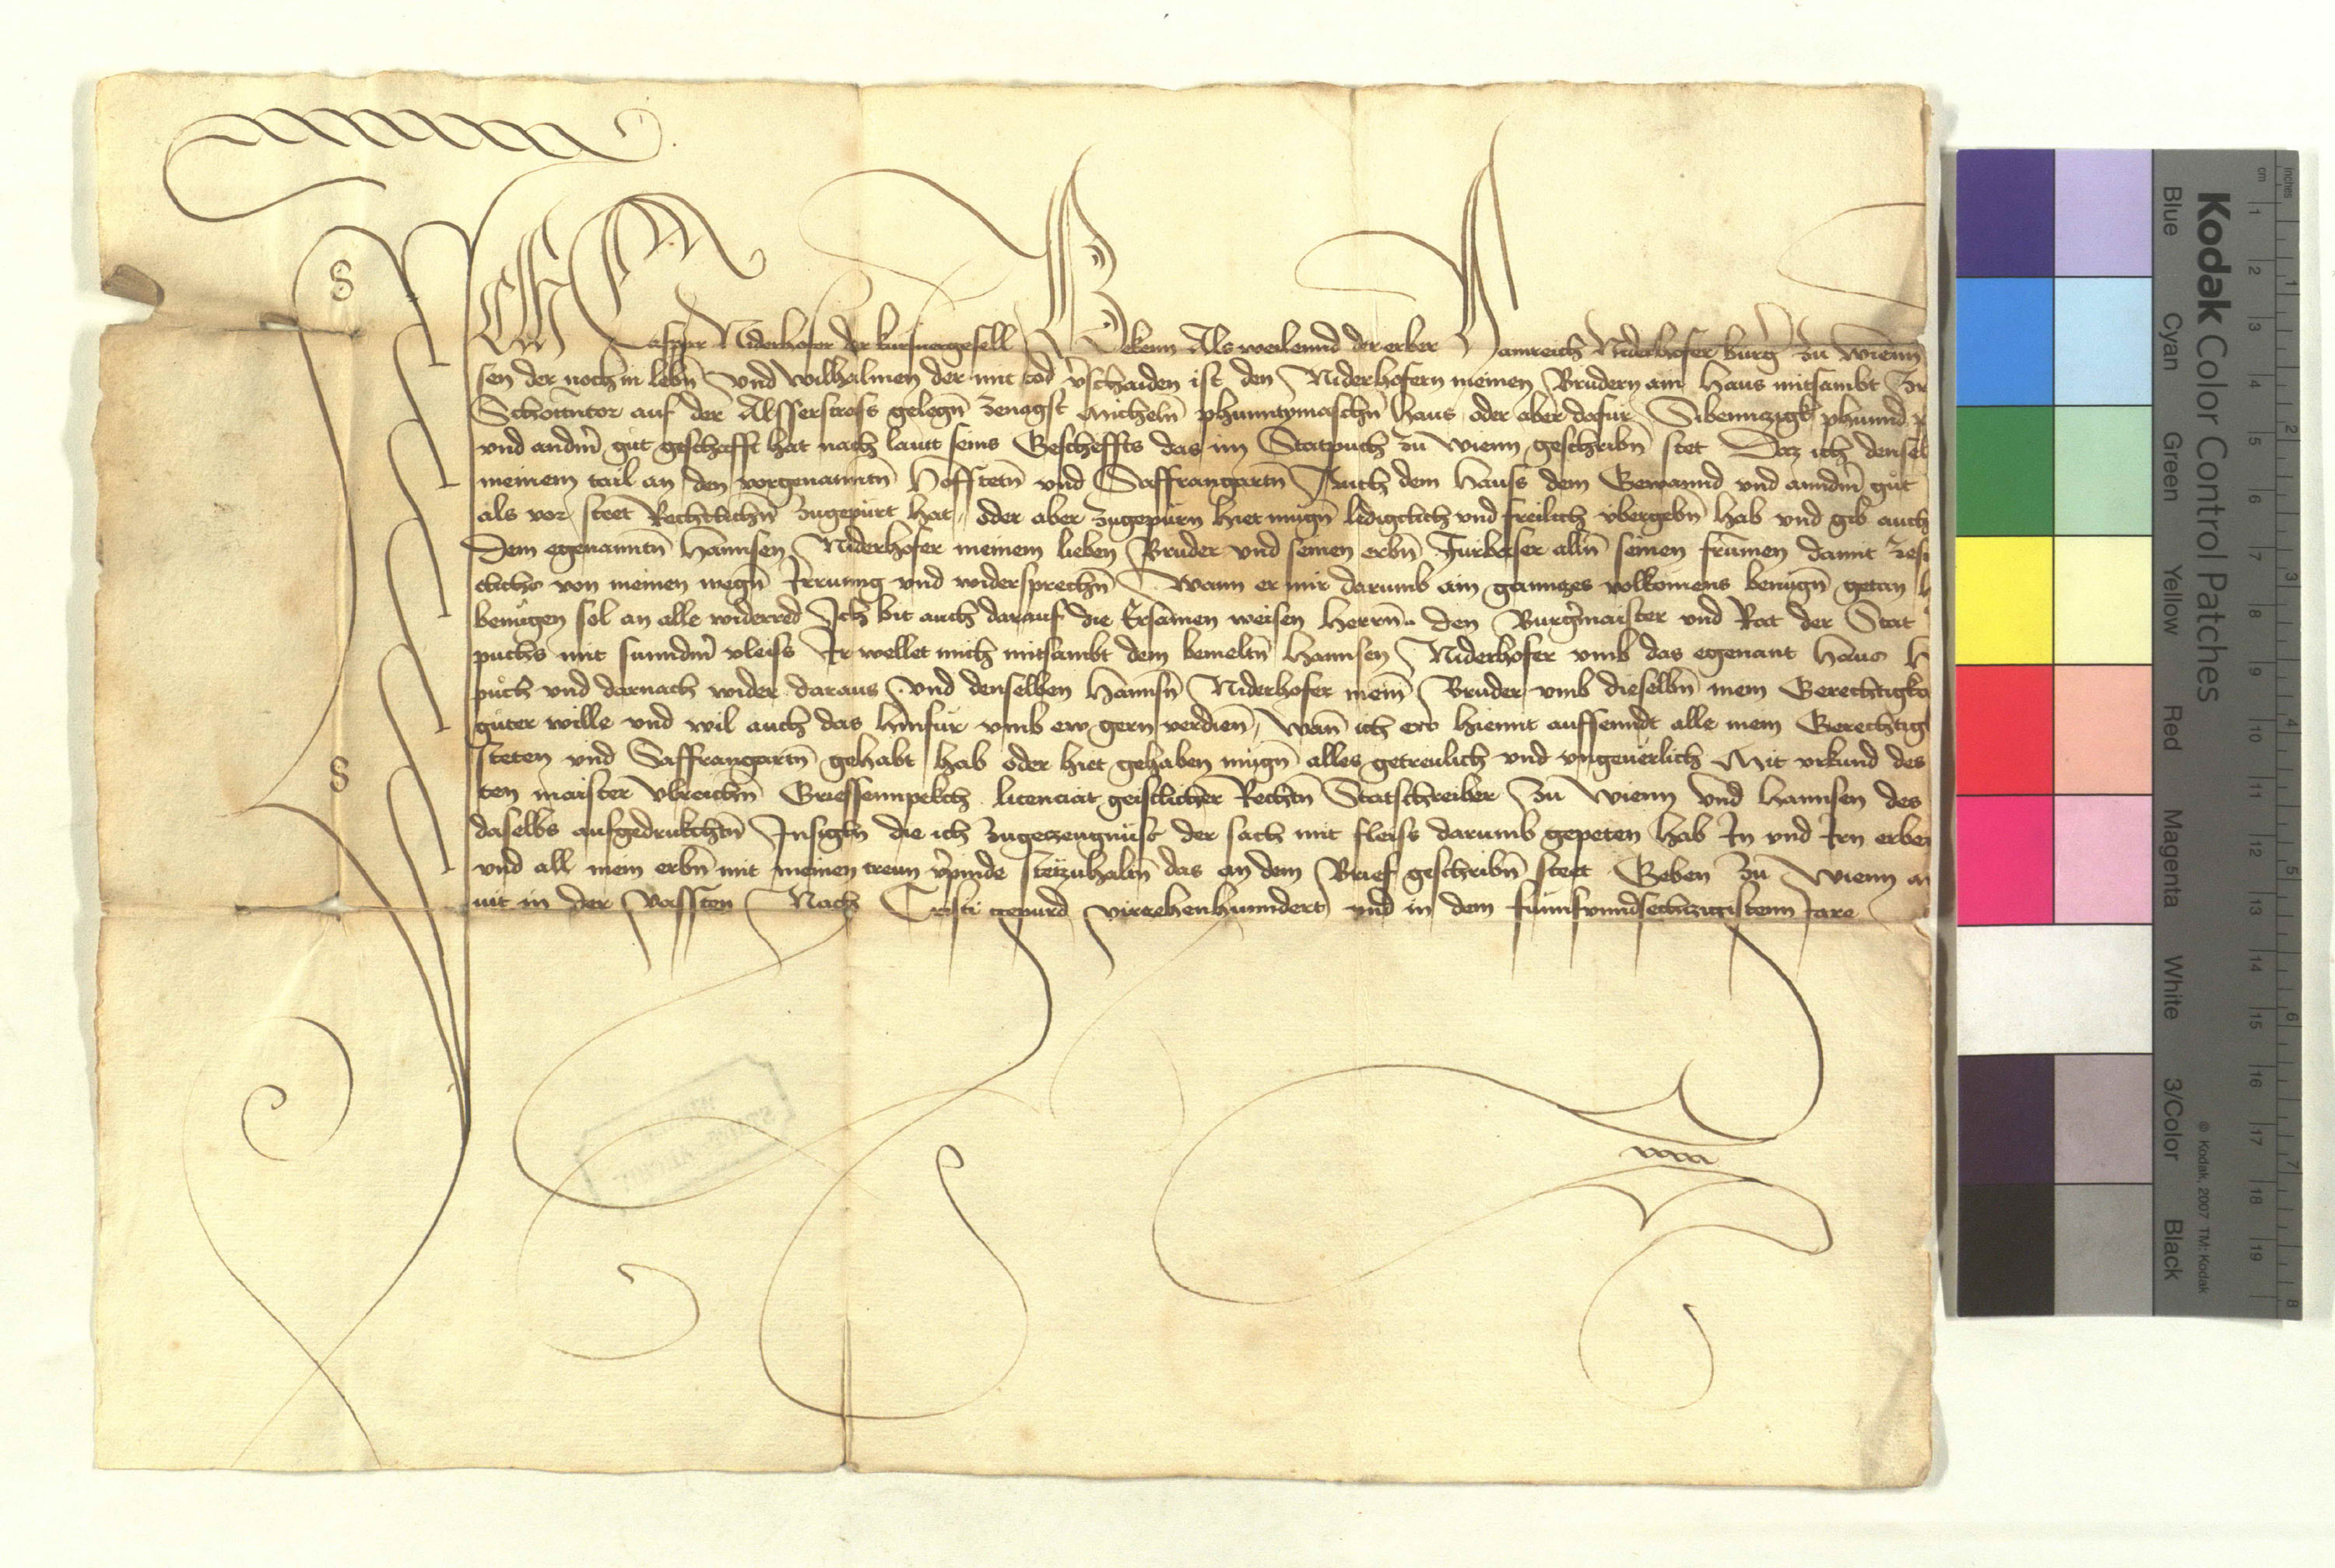 ICH Caspar Niderhofer der kürsnergesell Bekenn Als weilennd der erber Hainreich Niderhofer burg̉ zu Wienn
sen der noch in lebn̄ und Wilhalmen der mit tod v̉schaiden ist den Niderhofern meinen Brudern ain Haus mitsambt
Schottntor auf der Alsserstrass gelegn̄ zenagst Micheln̄ phunntimaschn̄ Haus oder aber dafür Sibennzigk phunnd
und andm̉ gut geschefft hat nach lautt seins Gescheffts das im Statpuch zu Wienn geschribn̄ stet Daz ich densel
meinem tail an den vorgenanntn̄ Hofstetn̄ und Saffrangartn̄ Auch dem Hauss dem Gewannd und anndm̉ gut
als vor steet Rechtlichn̄ zugepürt hat, oder aber zugepürn hiet mugn̄ ledigclich und freilich ubergebn̄ hab und gib auch
Dem egenanntn̄ Hannsen Niderhofer meinem lieben Bruder und seinen erbn̄ Fürbasser alln̄ seinen frumen damit
clichs von meinen wegn̄ Irrung und widersprechn̄ Wann er mir darumb ain gannczes volkomens benügn̄ getan
benügen sol an alle widerred Ich bit auch darauf die Ersamen weisen Herrn̄ den Burg̉maister und Rat der Stat
puchs mit sunndm̉ vleiss Ir wellet mich mitsambt dem bemeltn̄ Hannsen Niderhofer umb das egenant Haus
puch und darnach wider daraus und denselben Hannsn̄ Niderhofer mein̄ Bruder umb dieselbn̄ mein Gerechtigka
guter wille und wil auch das hinfür umb ew gern verdien̄, Wan̄ ich ew hiemit aufsenndt alle mein Gerechtig
steten und Saffrangartn̄ gehabt hab oder hiet gehaben mugn̄ alles getreulich und ungeuerlich Mit urkund des
ten maister Ulreichn̄ Griessennpekch licenciat geistlicher Rechtn̄ Statschreiber zu Wienn und Hannsen des
daselbs aufgedrukchtn̄ Insigln̄ die ich zugezeugnüss der sach mit fleiss darumb gepeten hab In und Irn erben
und all mein erbn̄ mit meinen treun v̉pinde stetzuhaltn̄ das an dem Brief geschribn̄ steet Geben zu Wienn
uit in der Vassten Nach Cristi gepurd vierzehenhunndert und in dem fünfundsechtzigistenn Jare
S
S
Kodak Color Control Patches
Blue Cyan Green Yellow Red Magenta White 3/Color Black
© Kodak, 2007 TM: Kodak
cm 1 2 3 4 5 6 7 8 9 10 11 12 13 14 15 16 17 18 19
inches 1 2 3 4 5 6 7 8